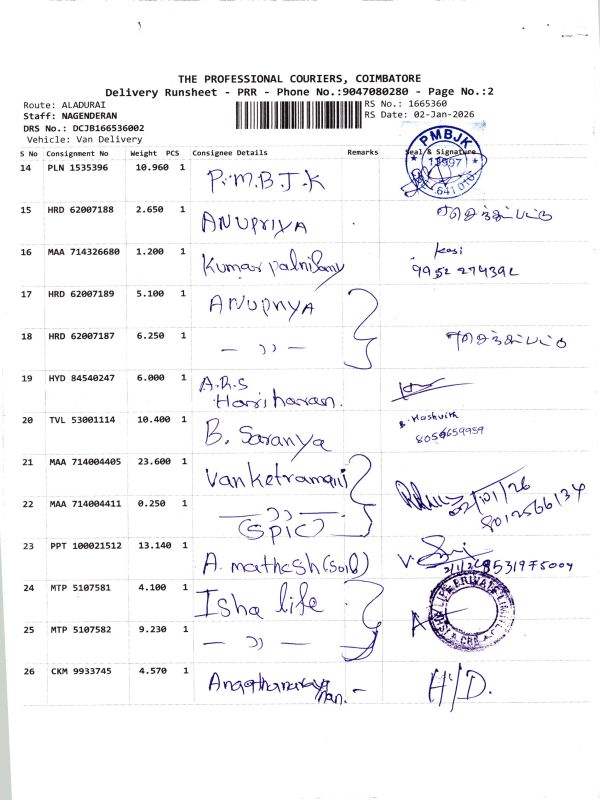 THE PROFESSIONAL COURIERS, COIMBATORE
Delivery Runsheet - PRR - Phone No.:9047080280 - Page No.:2
Route: ALADURAI RS No.: 1665360
Staff: NAGENDERAN RS Date: 02-Jan-2026
DRS No.: DCJB166536002
Vehicle: Van Delivery
S No Consignment No Weight PCS Consignee Details Remarks Seal & Signature
PMBJK
641 010
14 PLN 1535396 10.960 1 P.M.B.J.K
15 HRD 62007188 2.650 1 ANUPRIYA
16 MAA 714326680 1.200 1 Kumar palnisamy Kasi
9952 274392
17 HRD 62007189 5.100 1 ANUPRIYA
18 HRD 62007187 6.250 1 — ,, —
19 HYD 84540247 6.000 1 A.R.S
Hariharan.
20 TVL 53001114 10.400 1 B. Saranya B. Hashvith
8056659959
21 MAA 714004405 23.600 1 Vanketramani 02/01/26
8012566134
22 MAA 714004411 0.250 1 — ,, —
(SPIC)
23 PPT 100021512 13.140 1 A. mathesh (Soil) 2/1/26 8531975004
24 MTP 5107581 4.100 1 Isha life
25 MTP 5107582 9.230 1 — ,, —
26 CKM 9933745 4.570 1 H/D.